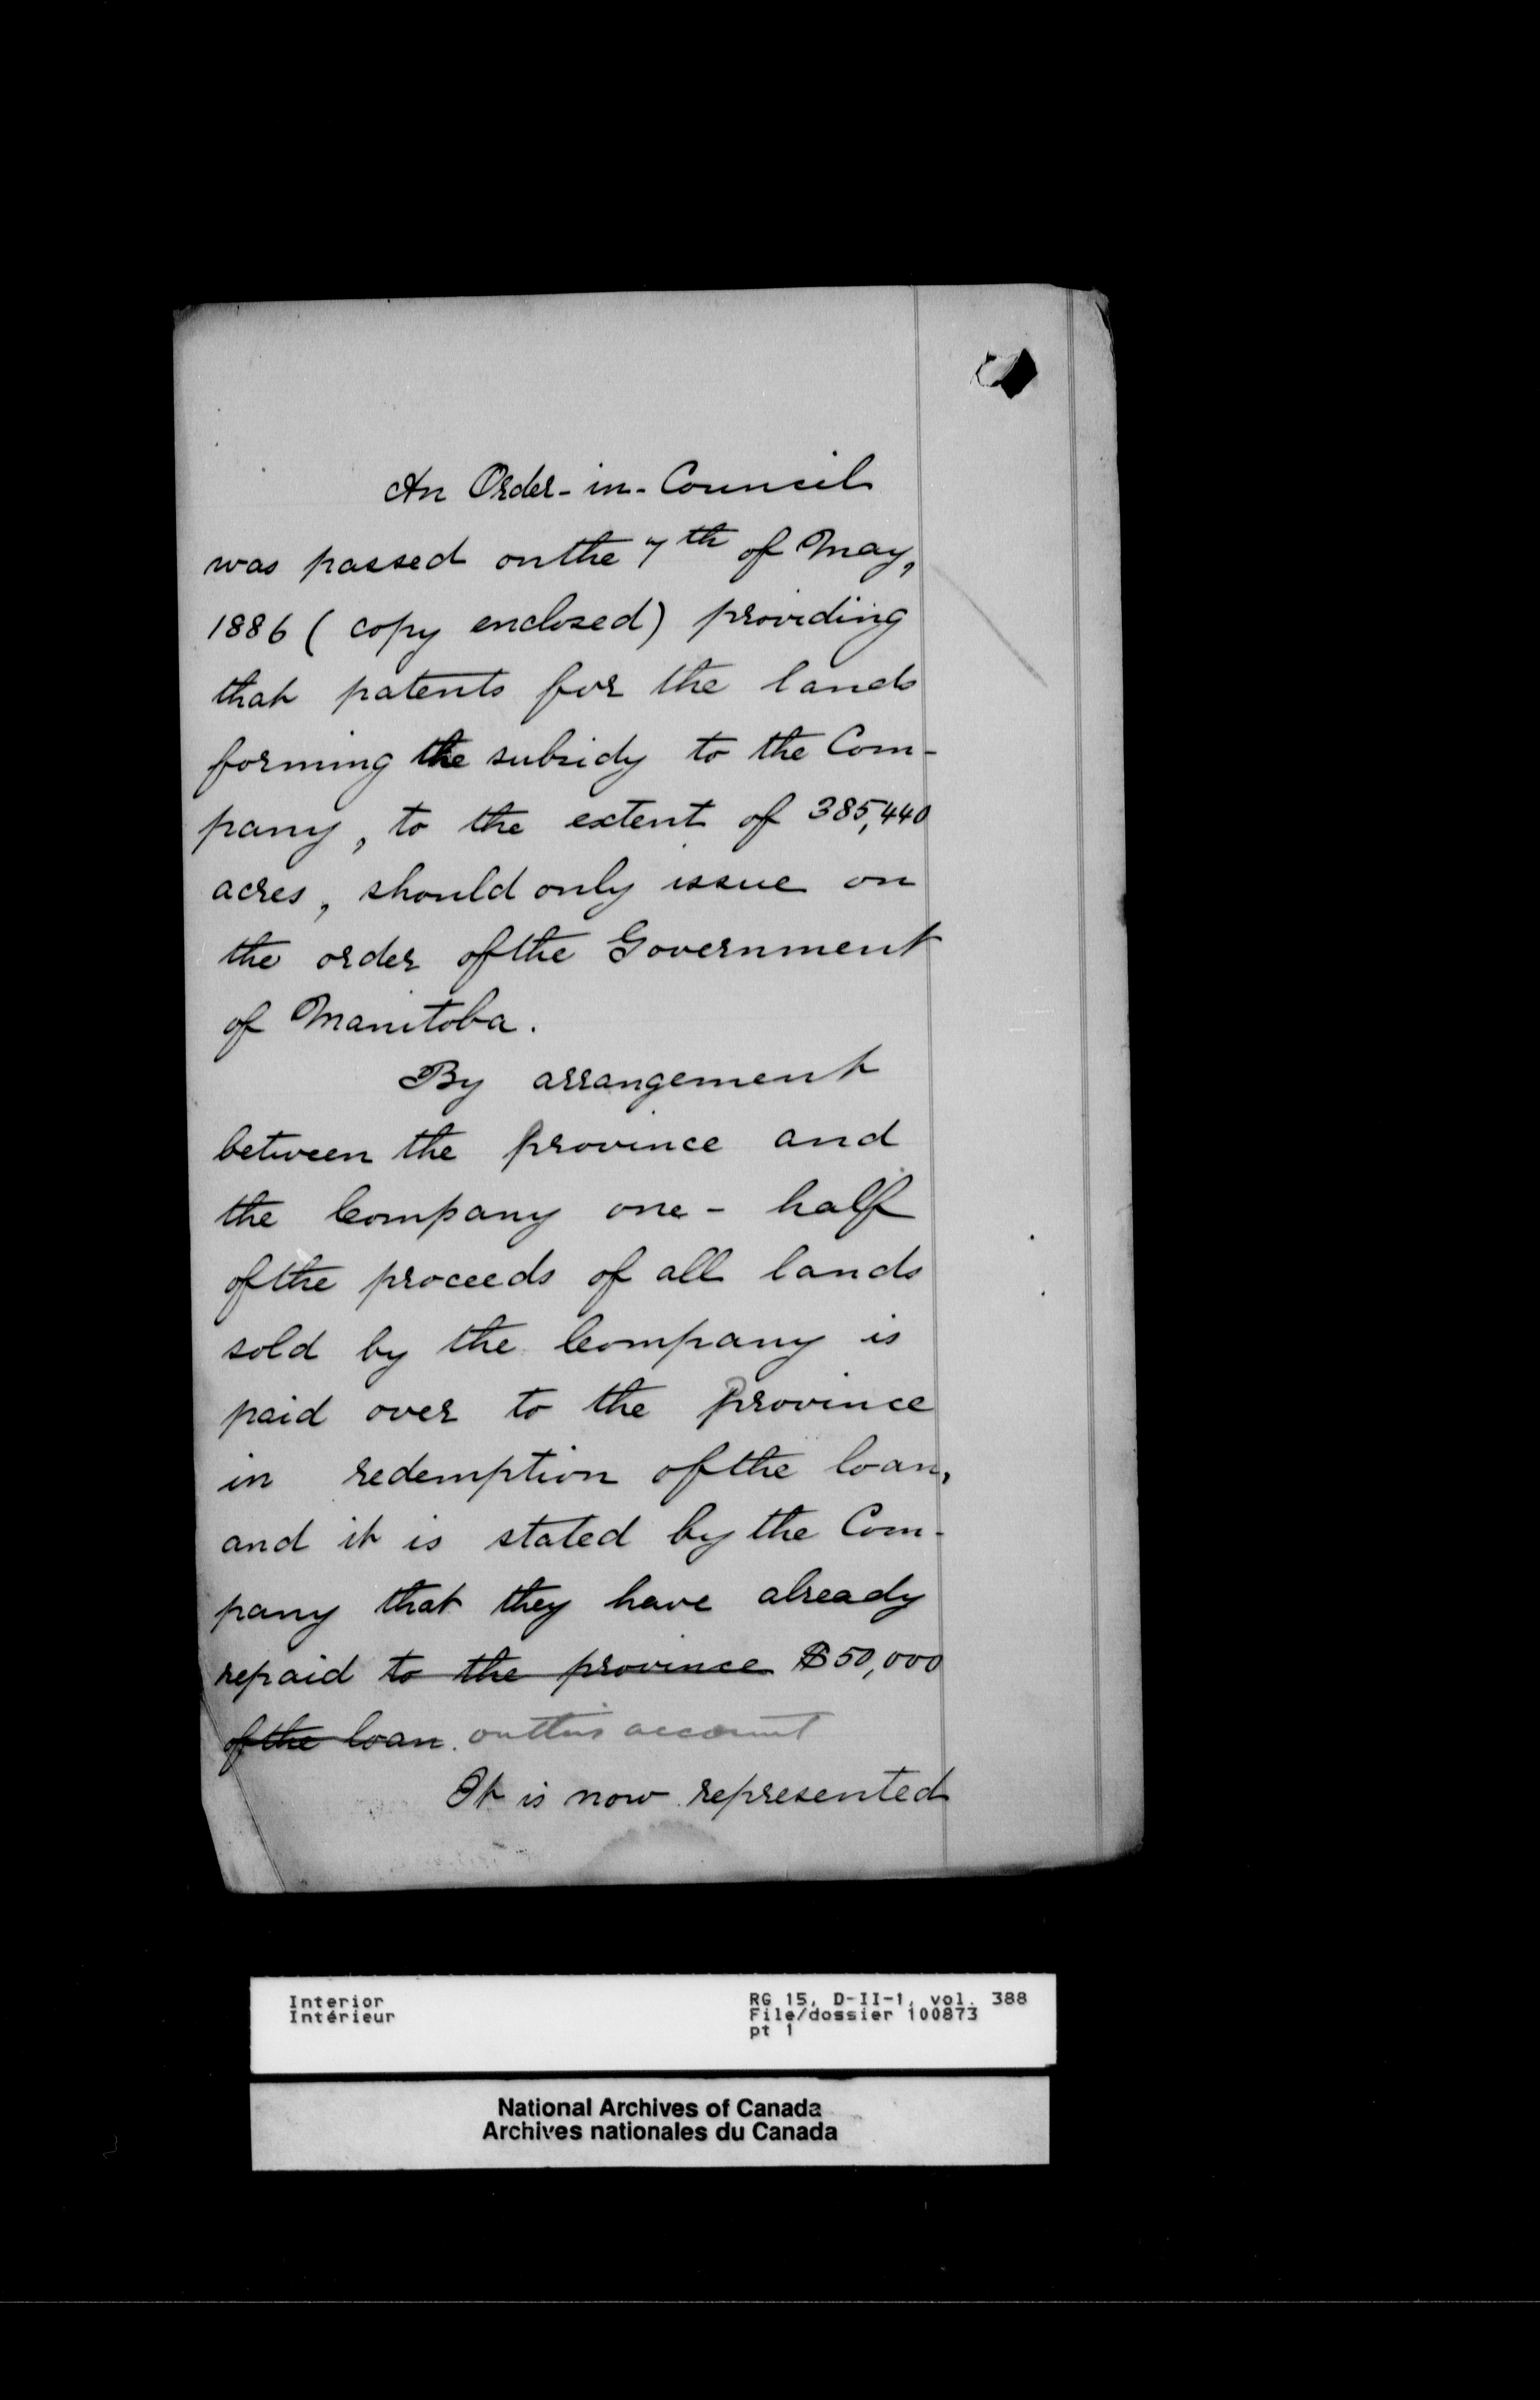 An Order-in-Council
was passed on the 7th of May,
1886 (copy enclosed) providing
that patents for the lands
forming the subsidy to the Com-
pany, to the extent of 385,440
acres, should only issue on
the order of the Government
of Manitoba.
By arrangement
between the Province and
the Company one-half
of the proceeds of all lands
sold by the Company is
paid over to the Province
in redemption of the loan,
and it is stated by the Com-
pany that they have already
repaid to the province $50,000
of the loan. on this account
It is now represented
Interior
Intérieur
RG 15, D-II-1, vol. 388
File/dossier 100873
pt 1
National Archives of Canada
Archives nationales du Canada